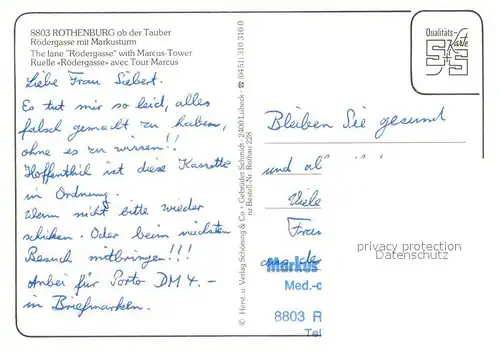 8803 ROTHENBURG ob der Tauber
Rödergasse mit Markusturm
The lane "Rödergasse" with Marcus-Tower
Ruelle «Rödergasse» avec Tour Marcus
Liebe Frau Siebert.
Es tut mir so leid, alles
falsch gemacht zu haben,
ohne es zu wissen!!
Hoffentlich ist diese Kassette
in Ordnung.
Wenn nicht bitte wieder
schicken. Oder beim nächsten
Besuch mitbringen!!!
Anbei für Porto DM 4.-
in Briefmarken.
© Herst. u. Verlag Schöning & Co · Gebrüder Schmidt · 2400 Lübeck · ☎ (0451) 310 310 0
nz Bestell-Nr. Rotbau 228
Qualitäts-
Karte
Bleiben Sie gesund
und
Viele
Frau
aus
Markus
Med.-
8803 R
Tel
privacy protection
Datenschutz